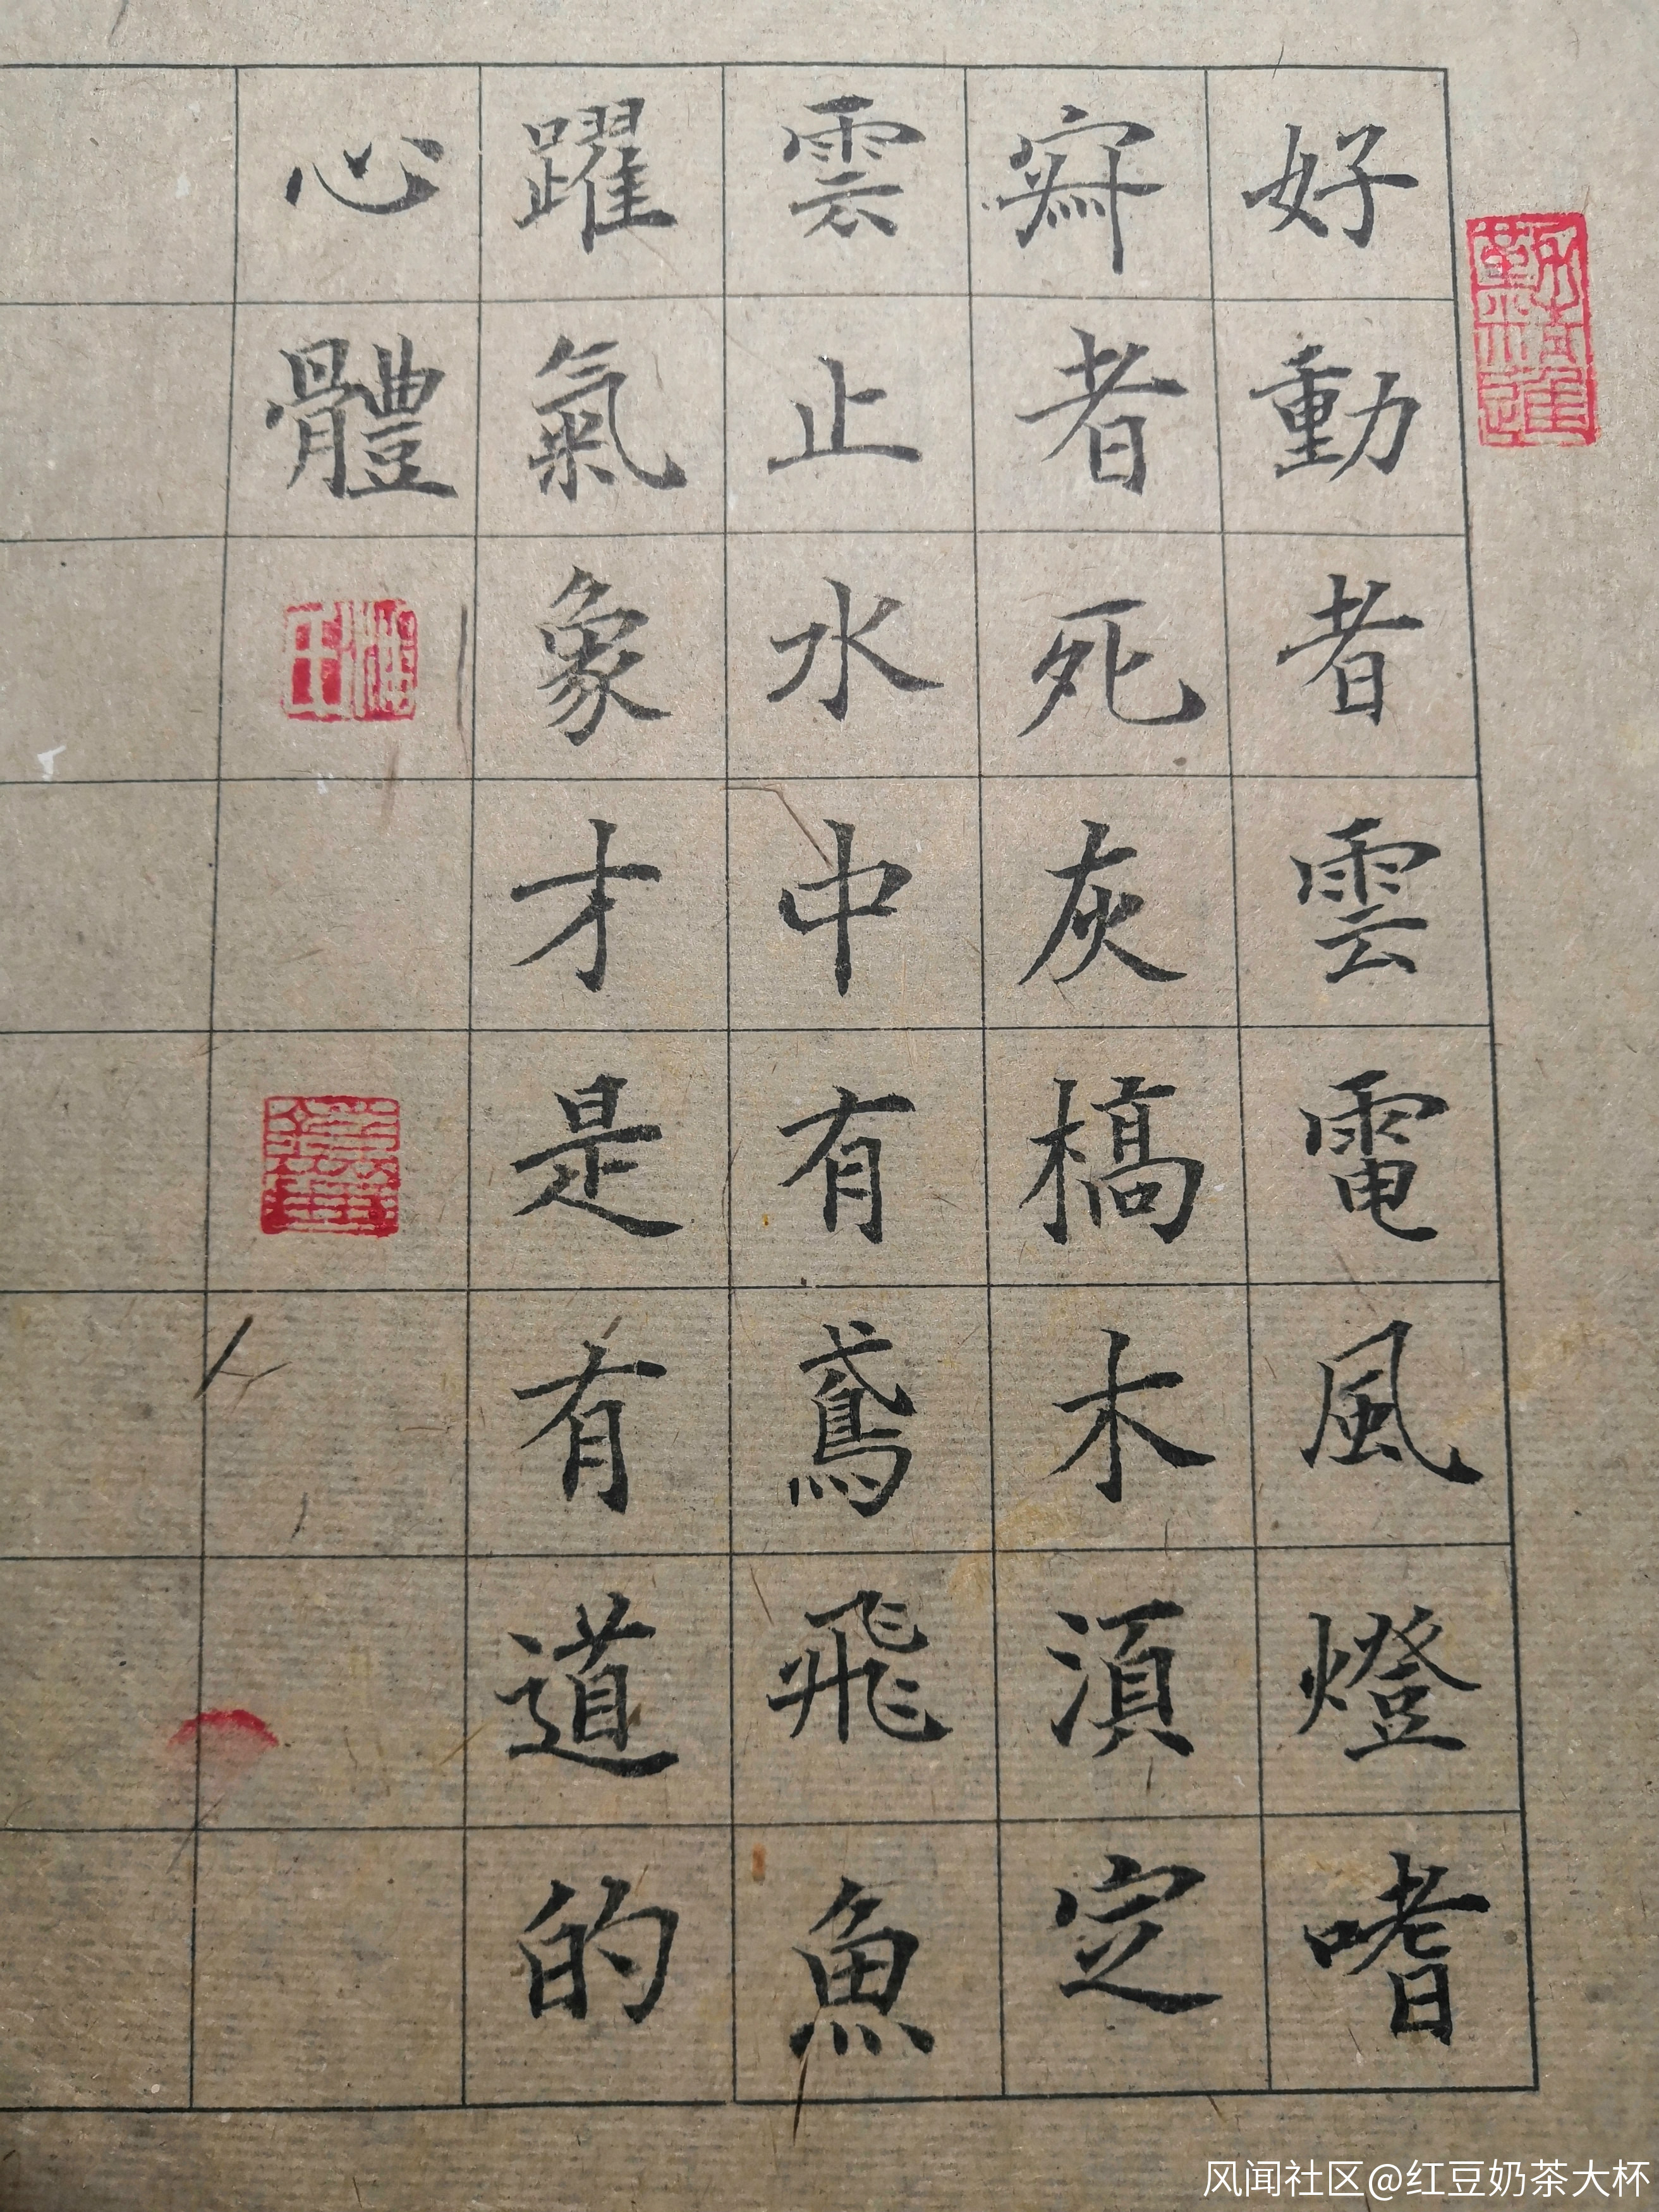 好動者雲電風燈嗜
寂者死灰槁木須定
雲止水中有鳶飛魚
躍氣象才是有道的
心體
风闻社区@红豆奶茶大杯